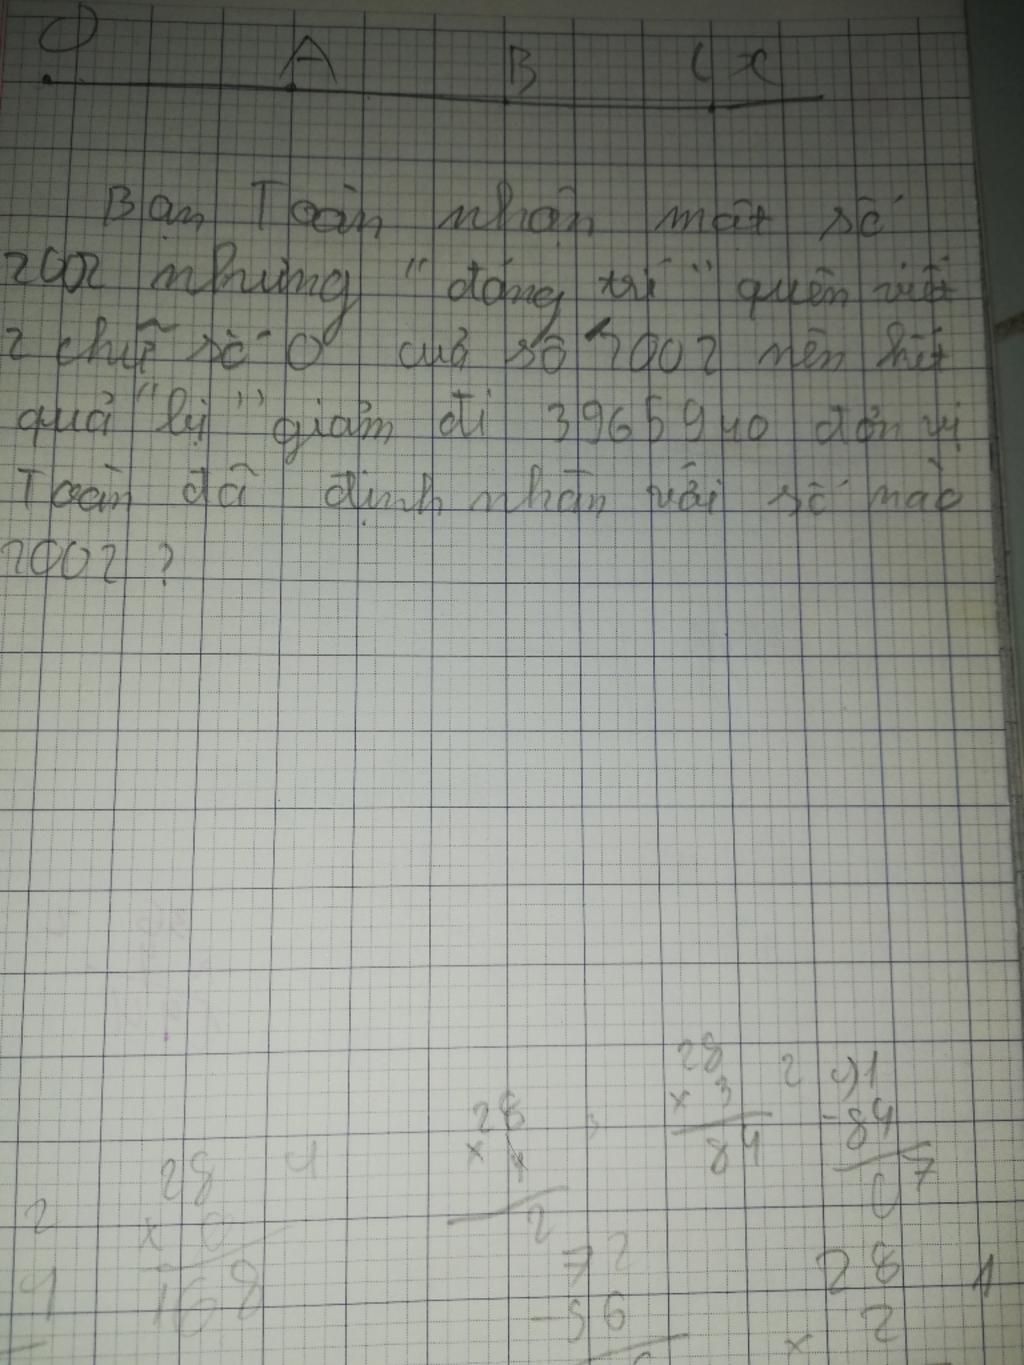 O A B C x
Bạn Toàn nhân một số
2002 nhưng "đãng trí" quên viết
2 chữ số 0 của số 2002 nên kết
quả "bị" giảm đi 3965940 đơn vị
Toàn đã định nhân với số nào
2002 ?
28
× 3
84
2 91
-84
07
28
×
2
28 4
×
168
2
4
72
-56
28 1
× 2